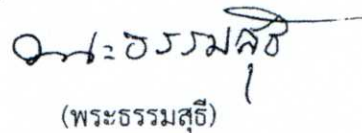 พระธรรมสุธี
(พระธรรมสุธี)